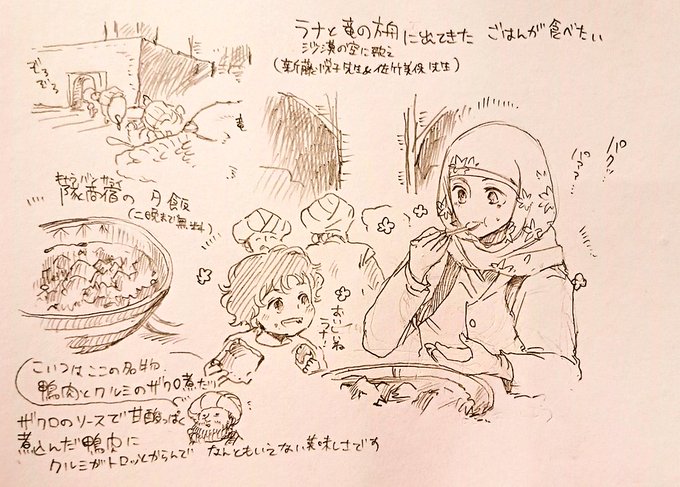 ラナと竜の方舟に出てきた ごはんが食べたい
沙漠の空に歌え
(新藤悦子先生&佐竹美保先生)
ぞろ
ぞろ
竜
パクッ
パァァ…
キャラバンサライ
隊商宿の 夕飯
(二晩まで無料)
おいしいね
ラナ!
こいつはここの名物、
鴨肉とクルミのザクロ煮だ!
ザクロのソースで甘酸っぱく
煮込んだ鴨肉に
クルミがトロッとからんで なんともいえない美味しさです